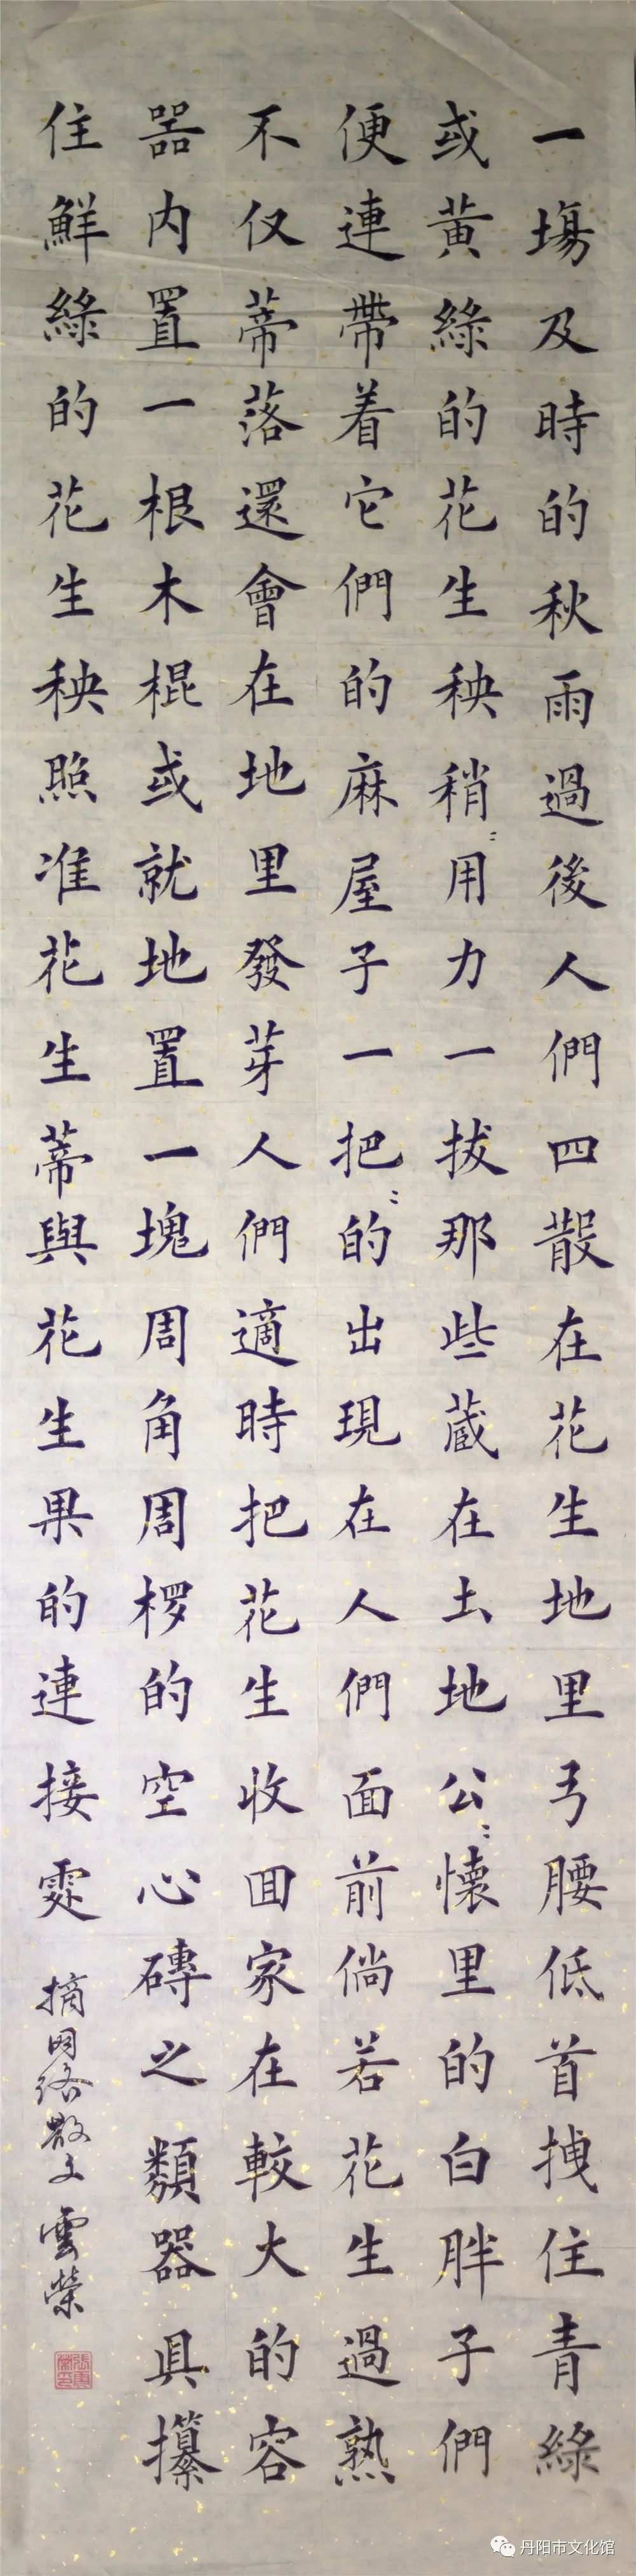 一塲及時的秋雨過後人們四散在花生地里弓腰低首拽住青綠
或黃綠的花生秧稍〻用力一拔那些蔵在土地公〻懐里的白胖子們
便連帶着它們的麻屋子一把〻的出現在人們面前倘若花生過熟
不仅蒂落還會在地里發芽人們適時把花生收囬家在較大的容
器内置一根木棍或就地置一塊周角周椤的空心磚之類器具攥
住鮮綠的花生秧照准花生蒂與花生果的連接䖏
摘网络散文 雲榮
丹阳市文化馆